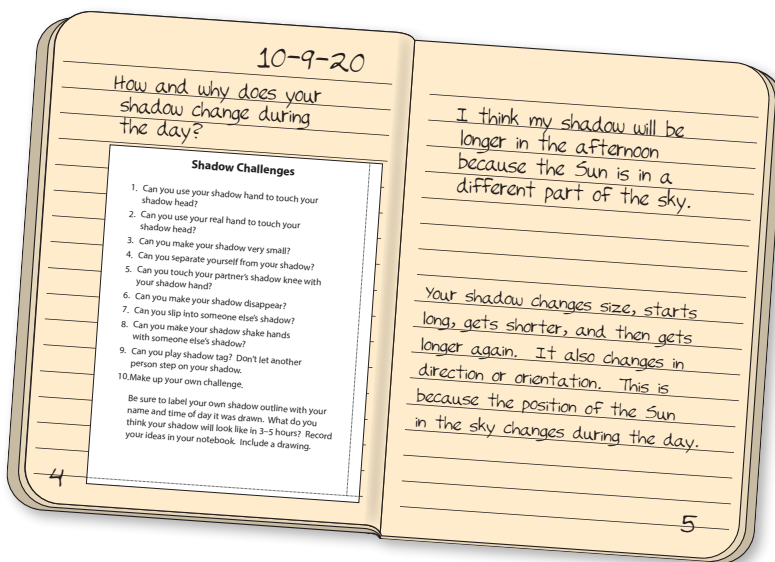 10-9-20
How and why does your
shadow change during
the day?
Shadow Challenges
1. Can you use your shadow hand to touch your
shadow head?
2. Can you use your real hand to touch your
shadow head?
3. Can you make your shadow very small?
4. Can you separate yourself from your shadow?
5. Can you touch your partner's shadow knee with
your shadow hand?
6. Can you make your shadow disappear?
7. Can you slip into someone else's shadow?
8. Can you make your shadow shake hands
with someone else's shadow?
9. Can you play shadow tag? Don't let another
person step on your shadow.
10.Make up your own challenge.
Be sure to label your own shadow outline with your
name and time of day it was drawn. What do you
think your shadow will look like in 3–5 hours? Record
your ideas in your notebook. Include a drawing.
4
I think my shadow will be
longer in the afternoon
because the Sun is in a
different part of the sky.
Your shadow changes size, starts
long, gets shorter, and then gets
longer again. It also changes in
direction or orientation. This is
because the position of the Sun
in the sky changes during the day.
5